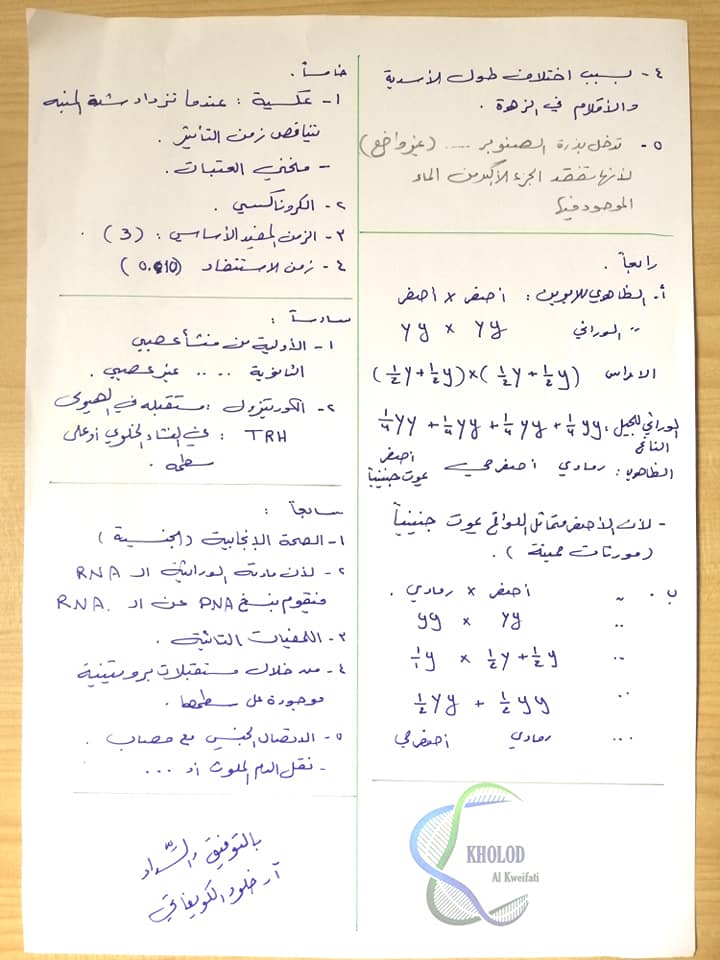 ٤- بسبب اختلاف طول الأسدية
والأقلام في الزهرة .
٥- تدخل بذرة الصنوبر .... (غير واضح)
لأنها تفقد الجزء الأكبر من الماء
الموجود فيها
رابعاً .
أ. الظاهري للأبوين : أصفر × أصفر
〃 الوراثي Yy × Yy
الأعراس (½Y+½y)×(½Y+½y)
الوراثي للجيل : ¼YY + ¼Yy + ¼Yy + ¼yy
الناتج
الظاهري : رمادي أصفر حي أصفر يموت جنينياً
- لأن الأصفر متماثل اللواقح يموت جنينياً
(مورثات مميتة) .
ب. 〃 أصفر × رمادي .
〃 Yy × yy
〃 ½Y+½y × 1/1 y
〃 ½Yy + ½yy
.... رمادي أصفر حي
خامساً .
١- عكسية : عندما تزداد شدة المنبه
يتناقص زمن التأثير .
- منحني العتبات .
٢- الكروناكسي .
٣- الزمن المفيد الأساسي : (3) .
٤- زمن الاستنفاد (0.010)
سادساً :
١- الأولية من منشأ عصبي
الثانوية .... غير عصبي .
٢- الكورتيزول : مستقبله في الهيولى
TRH : في الغشاء الخلوي أو على
سطحه .
سابعاً :
١- الصحة الإنجابية (الجنسية)
٢- لأن مادته الوراثية الـ RNA
فتقوم بنسخ DNA عن الـ RNA.
٣- اللمفيات التائية .
٤- من خلال مستقبلات بروتينية
موجودة على سطحها .
٥- الاتصال الجنسي مع مصاب .
- نقل الدم الملوث أو ...
بالتوفيق والسّداد
آ. خلود الكويفاتي
KHOLOD
Al Kweifati